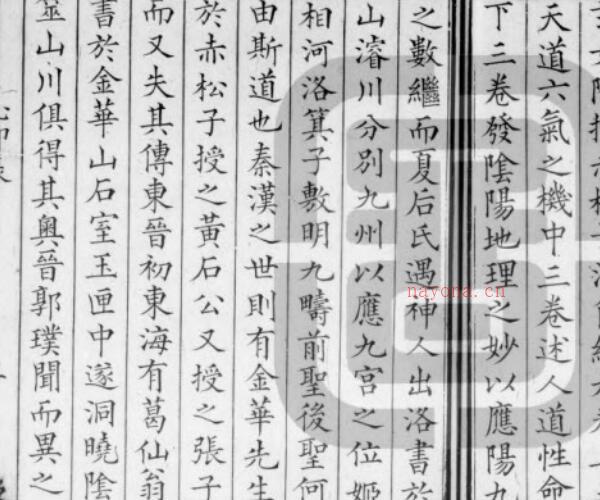 天道六氣之機中三卷述人道性命
下三卷發陰陽地理之妙以應陽九
之數繼而夏后氏遇神人出洛書於
山濬川分別九州以應九宮之位姬
相河洛箕子敷明九疇前聖後聖何
由斯道也秦漢之世則有金華先生
於赤松子授之黃石公又授之張子
而又失其傳東晉初東海有葛仙翁
書於金華山石室玉匣中遂洞曉陰
筮山川俱得其奧晉郭璞聞而異之
nayona.cn